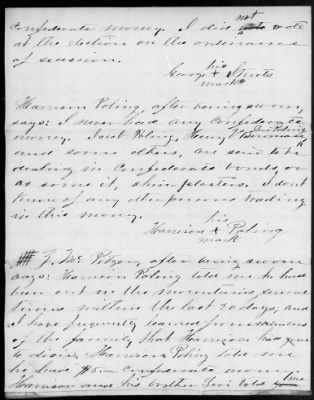 Confederate money. I did not vote
at the election on the ordinance
of secession.
his
George + Streets
mark
Harrison Poling, after being sworn,
says: I never had any Confederate
money. Jacob Poling, Henry V Bowman
Levi Poling
and some others, are said to be
dealing in Confederate bonds, or
as some it, shinplasters. I dont
know of any other persons trading
in this money.
his
Harrison + Poling
mark
J. Mc, after being sworn
says: Harrison Poling told me he had
been out in the mountains some
times within the last 20 days; and
I have frequently learned from
of the family that Harrison had gone
to Dixie. Harrison Poling told me
he had $5 – Confederate money.
Harrison and his brother Levi told me